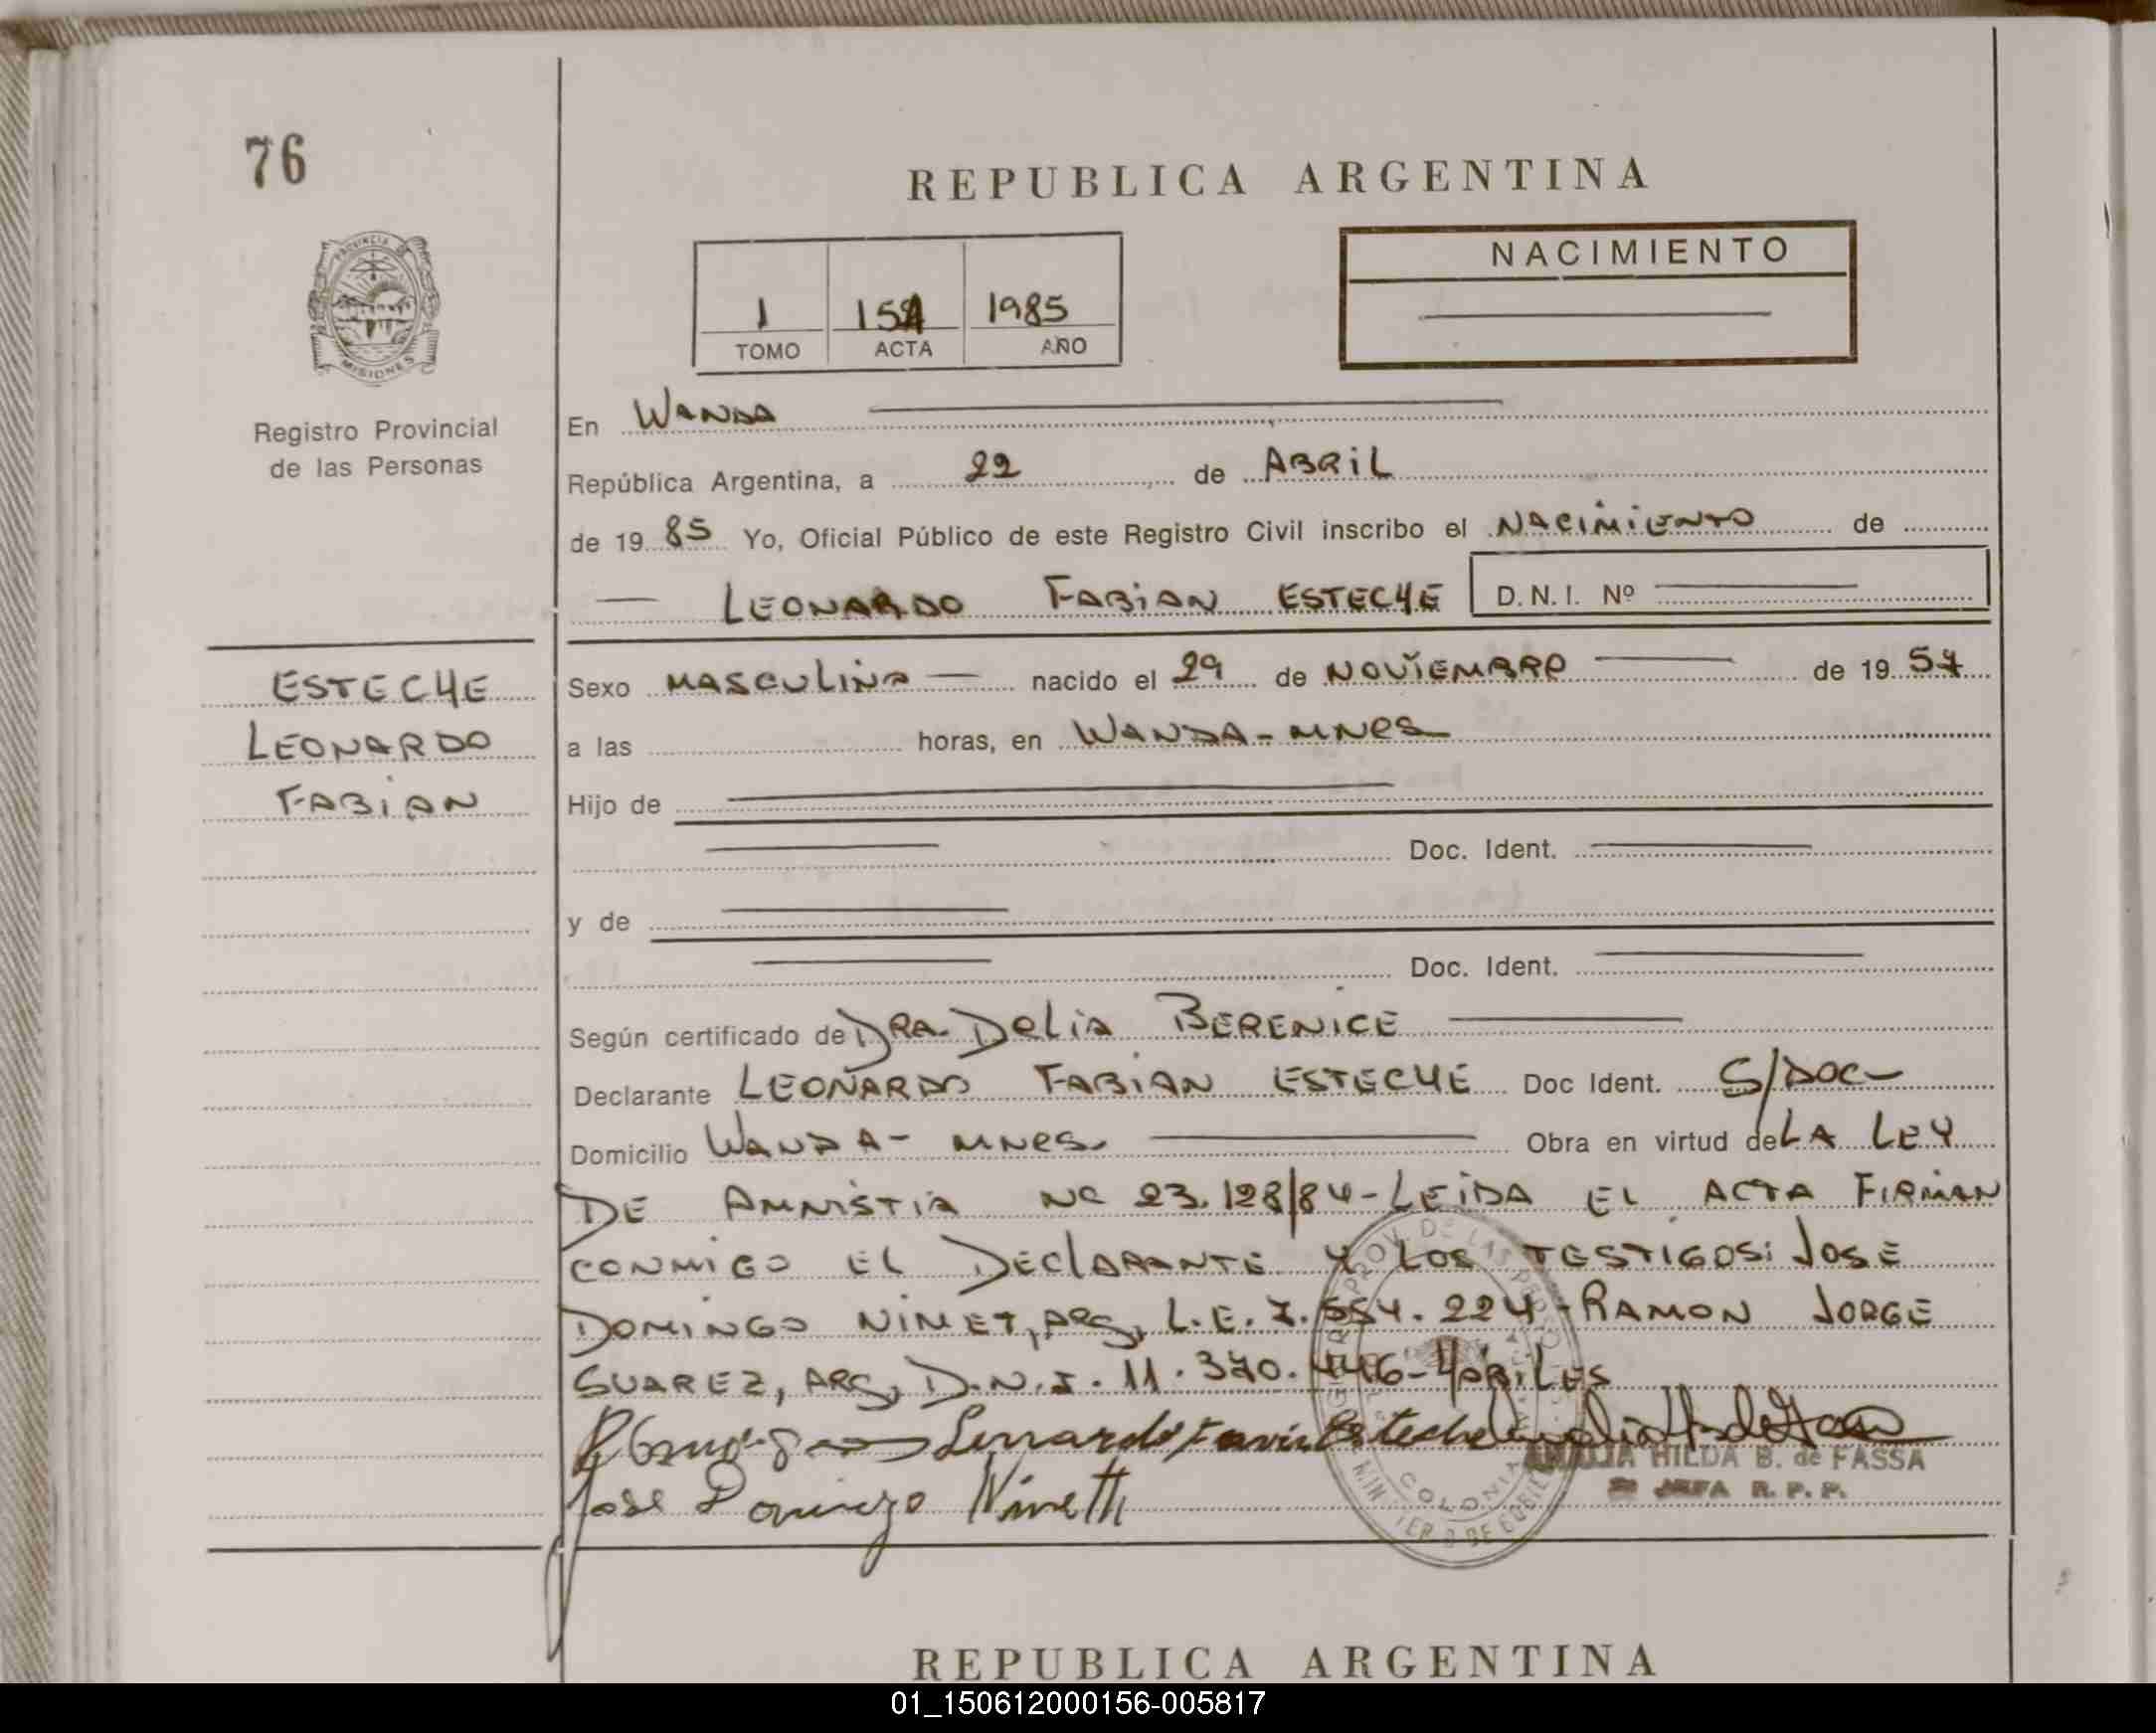 76
REPUBLICA ARGENTINA
NACIMIENTO
1 151 1985
TOMO ACTA AÑO
PROVINCIA DE
MISIONES
Registro Provincial
de las Personas
En WANDA
República Argentina, a 22 de ABRIL
de 19 85 Yo, Oficial Público de este Registro Civil inscribo el NACIMIENTO de
LEONARDO FABIAN ESTECHE D.N.I. Nº
ESTECHE
LEONARDO
FABIAN
Sexo MASCULINO nacido el 29 de NOVIEMBRE de 19 57
a las horas, en WANDA - MNES
Hijo de
Doc. Ident.
y de
Doc. Ident.
Según certificado de DRA. DELIA BERENICE
Declarante LEONARDO FABIAN ESTECHE Doc Ident. S/DOC-
Domicilio WANDA - MNES. Obra en virtud de LA LEY
DE AMNISTIA Nº 23.128/84 - LEIDA EL ACTA FIRMAN
CONMIGO EL DECLARANTE Y LOS TESTIGOS: JOSE
DOMINGO NINET, ARG, L.E. 7.554.224 - RAMON JORGE
SUAREZ, ARG, D.N.I. 11.370.446 - HABILES
Esteche
AMALIA HILDA B. de FASSA
JEFA R. P. P.
Jose Domingo Ninetti
COLONIA
REPUBLICA ARGENTINA
01_150612000156-005817